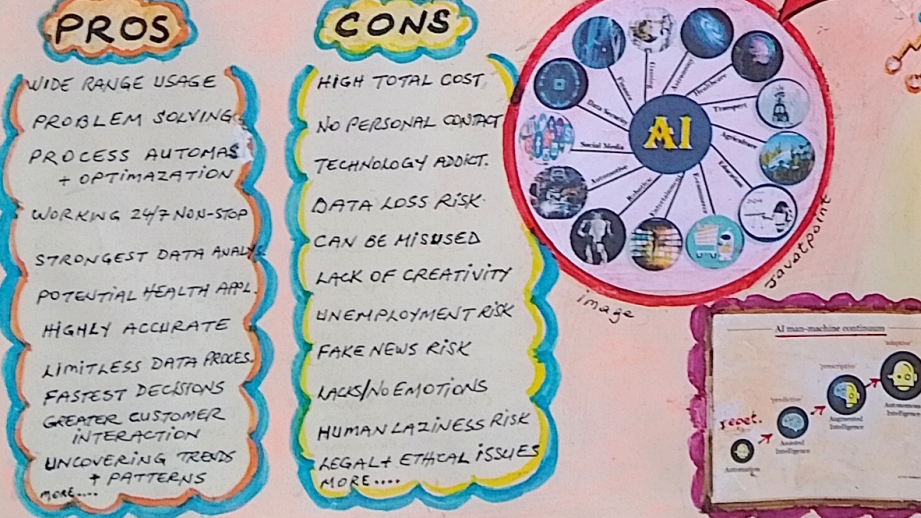 PROS
WIDE RANGE USAGE
PROBLEM SOLVING
PROCESS AUTOMAS
+ OPTIMAZATION
WORKING 24/7 NON-STOP
STRONGEST DATA ANALYS.
POTENTIAL HEALTH APPL.
HIGHLY ACCURATE
LIMITLESS DATA PROCES.
FASTEST DECISIONS
GREATER CUSTOMER
INTERACTION
UNCOVERING TRENDS
+ PATTERNS
MORE....
CONS
HIGH TOTAL COST.
NO PERSONAL CONTACT
TECHNOLOGY ADDICT.
DATA LOSS RISK
CAN BE MISUSED
LACK OF CREATIVITY
UNEMPLOYMENT RISK
FAKE NEWS RISK
LACKS/NO EMOTIONS
HUMAN LAZINESS RISK
LEGAL + ETHICAL ISSUES
MORE....
AI
Gaming
Astronomy
Healthcare
Transport
Agriculture
Education
E-commerce
Entertainment
Robotics
Automotive
Social Media
Data Security
Finance
image
Javatpoint
AI man-machine continuum
repet.
Automation
'predictive'
Assisted
Intelligence
'prescriptive'
Augmented
Intelligence
'adaptive'
Intelligence